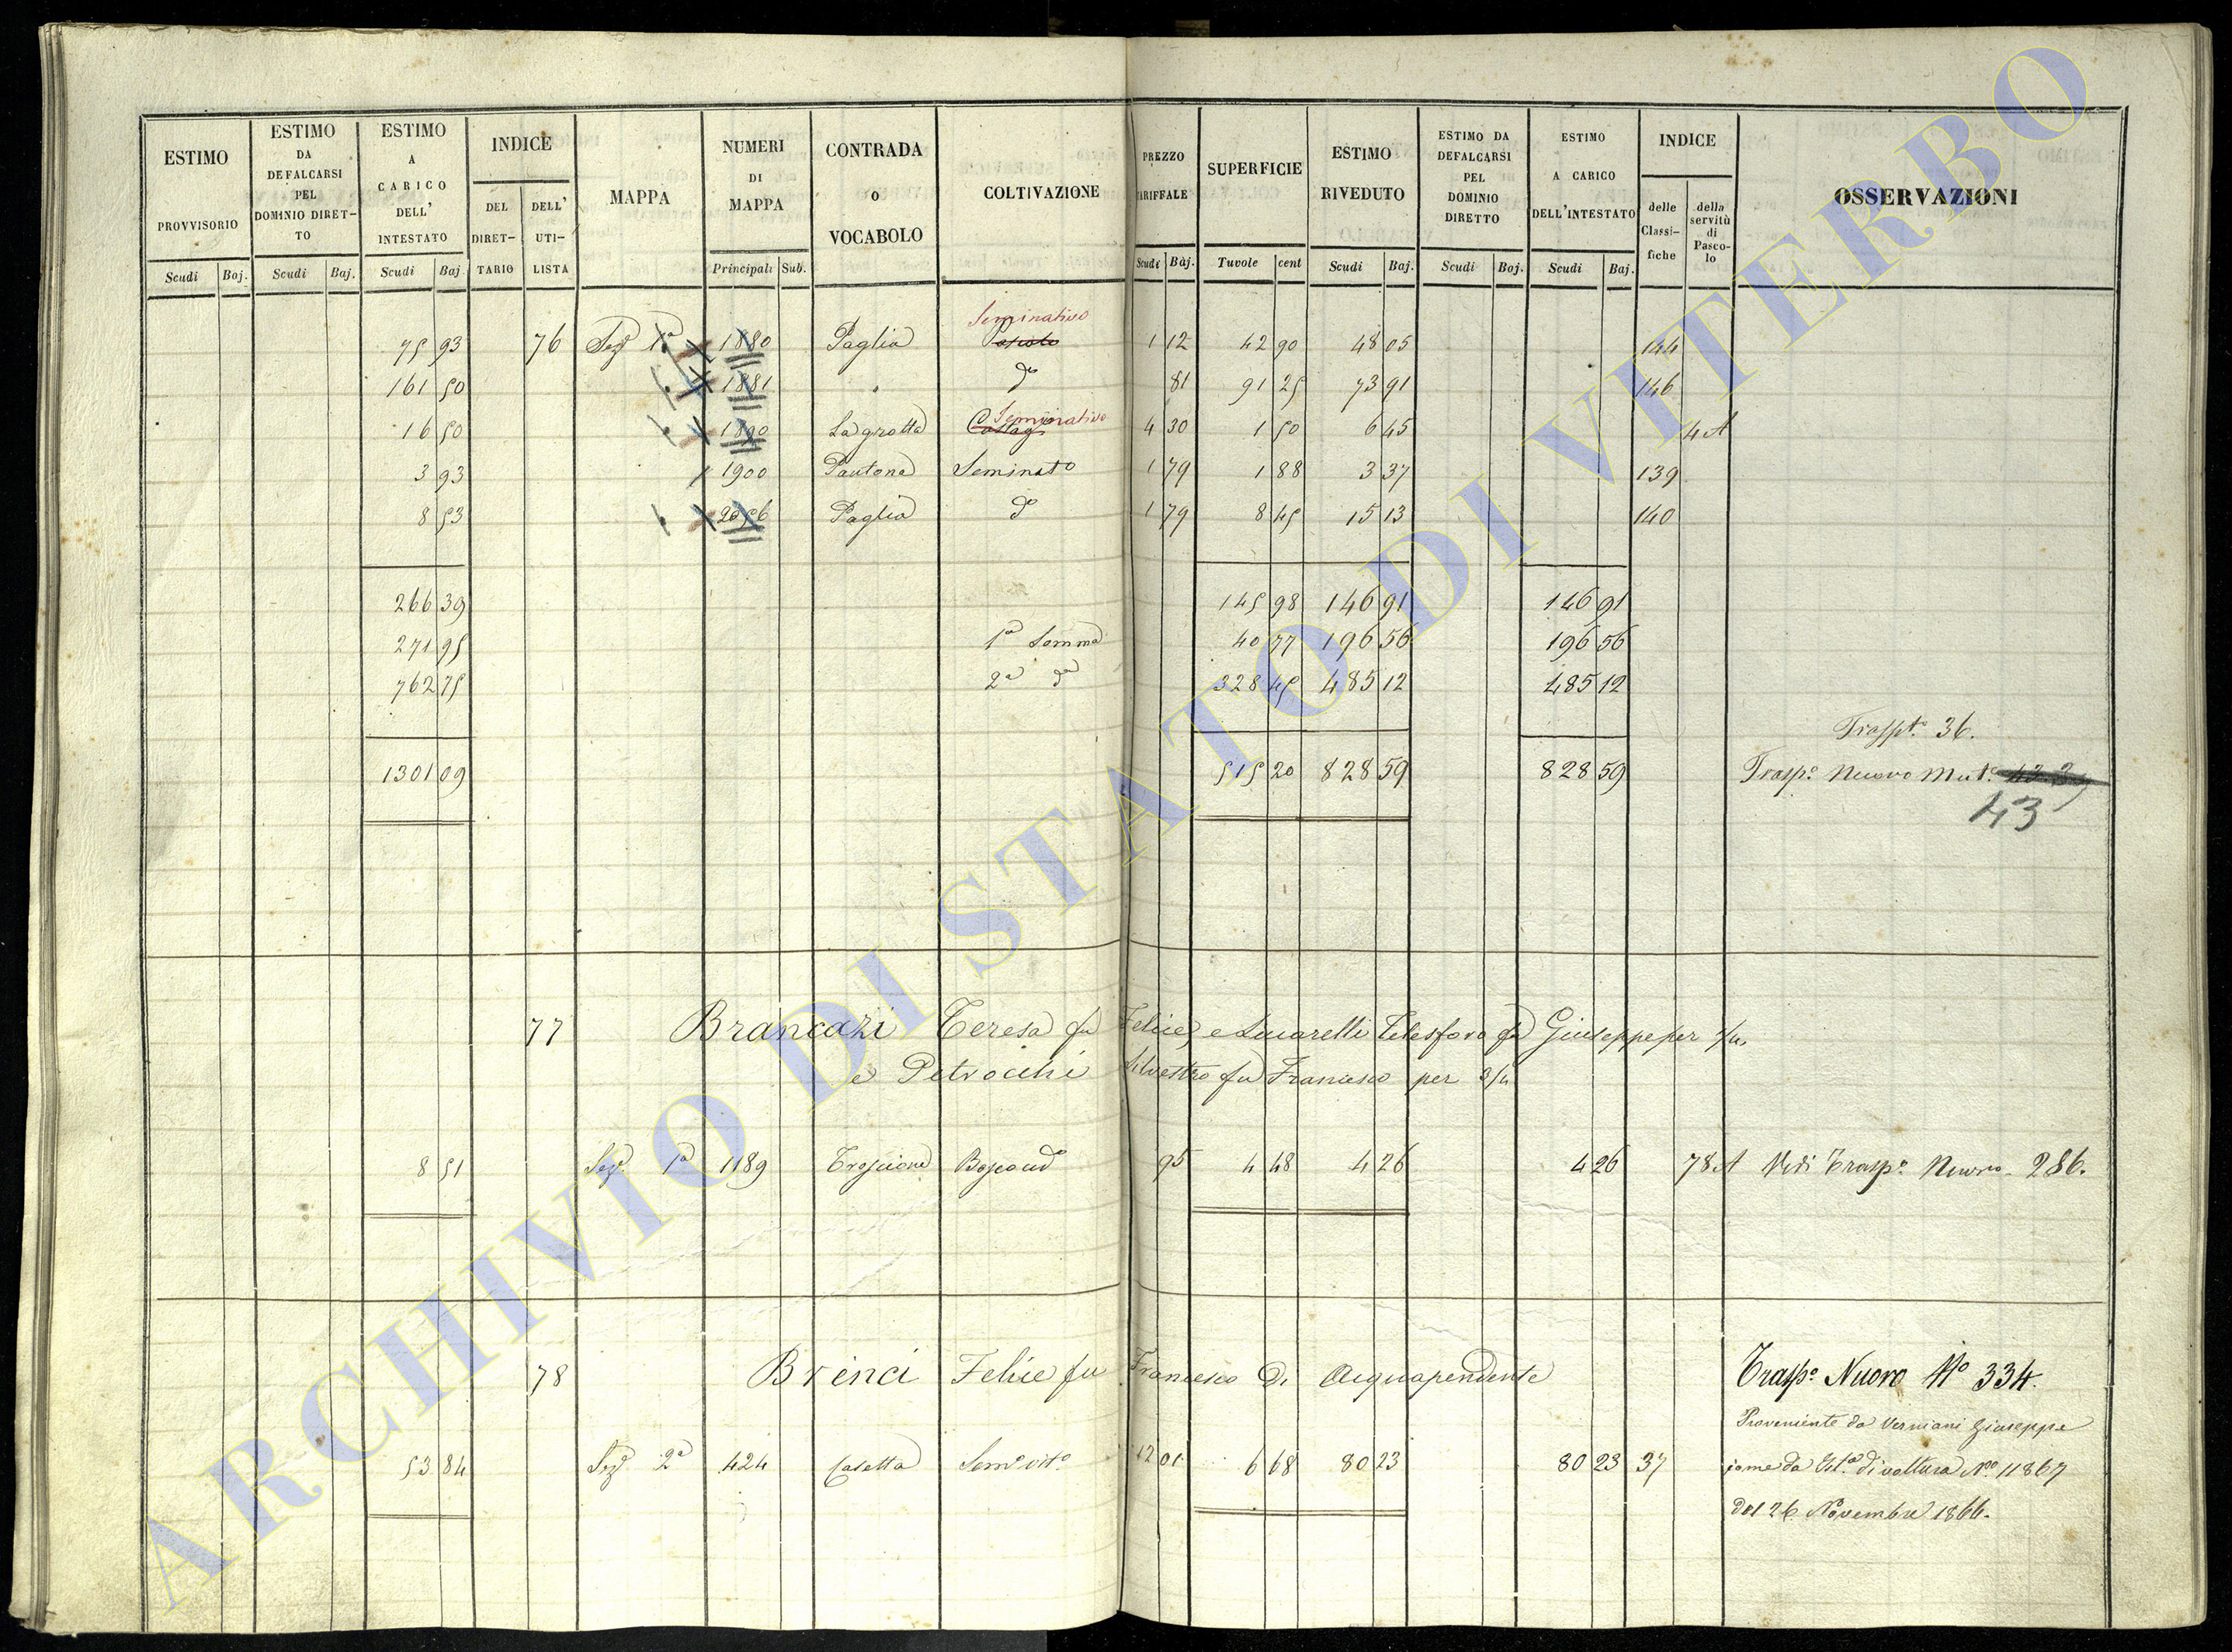 ESTIMO PROVVISORIO | ESTIMO DA DEFALCARSI PEL DOMINIO DIRETTO | ESTIMO A CARICO DELL' INTESTATO | INDICE | MAPPA | NUMERI DI MAPPA | CONTRADA O VOCABOLO | COLTIVAZIONE | PREZZO TARIFFALE | SUPERFICIE | ESTIMO RIVEDUTO | ESTIMO DA DEFALCARSI PEL DOMINIO DIRETTO | ESTIMO A CARICO DELL'INTESTATO | INDICE | OSSERVAZIONI
DEL DIRETTARIO | DELL' UTILISTA | delle Classifiche | della servitù di Pascolo
Scudi | Baj. | Scudi | Baj. | Scudi | Baj. | Principali | Sub. | Scudi | Baj. | Tuvole | cent | Scudi | Baj. | Scudi | Baj. | Scudi | Baj.
Seminativo
75 93 | 76 | Sezе 1a | 1880 | Paglia | Pascolo | 1 12 | 42 90 | 48 05 | 144
161 50 | 1881 | do | 81 | 91 25 | 73 91 | 146
Seminativo
16 50 | 1890 | La grotta | 4 30 | 1 50 | 6 45 | 4 A
3 93 | 1900 | Pantona | Seminato | 1 79 | 1 88 | 3 37 | 139
8 53 | 2056 | Paglia | do | 1 79 | 8 45 | 15 13 | 140
266 39 | 145 98 | 146 91 | 146 91
271 95 | 1a Somma | 40 77 | 196 56 | 196 56
762 75 | 2a da | 328 45 | 485 12 | 485 12
Traspto 36.
1301 09 | 515 20 | 828 59 | 828 59 | Traspo Nuovo Muto
43
77 | Brancazi Teresa fu Felice, e Lucarelli Telesforo fu Giuseppe per 1/4
e Petrocchi Silvestro fu Francesco per 3/4
8 51 | Seze 1a | 1189 | Troscione | 95 | 4 48 | 4 26 | 4 26 | 78 A | Vedi Traspo Nuovo 286.
78 | Brenci Felice fu Francesco di Acquapendente | Traspo Nuovo No 334.
Proveniente da Verniani Giuseppe
53 84 | Seze 2a | 424 | Casetta | Semo vito | 12 01 | 6 68 | 80 23 | 80 23 | 37 | come da Ista di voltura No 11867
del 26 Novembre 1866.
ARCHIVIO DI STATO DI VITERBO